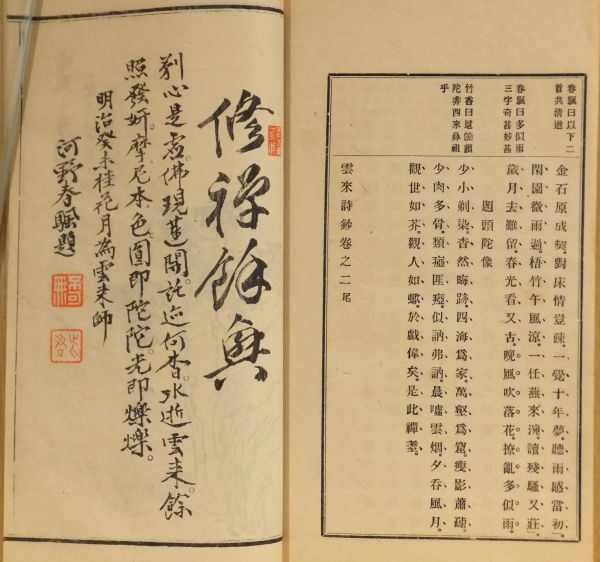 春飄曰以下二
首共清遒
金石原成契。對床情豈疎。一覺十年夢。聽雨感當初。
閑園微雨過。梧竹午風涼。一任燕來浼。讀殘騷又莊。
春飄曰多似雨
三字奇甚妙甚
歲月去難留。春光看又古。晩風吹落花。撩亂多似雨。
題頭陀像
竹香曰這箇頭
陀非西來鼻祖
乎
少小剃染。杳然晦跡。四海爲家。萬壑爲窟。瘦影蕭疎。
少肉多骨。類癡匪癡。似訥弗訥。晨噓雲烟。夕呑風月。
觀世如芥。觀人如蠛。於戲偉矣。是此禪耋。
雲來詩鈔卷之二尾
修禪餘興
剎心是處。佛現蓮開。託迹何杳。水逝雲来。餘
照發妍。摩尼本色。圓即陀陀。光即爍爍。
明治癸未桂花月為雲来師
河野春飄題